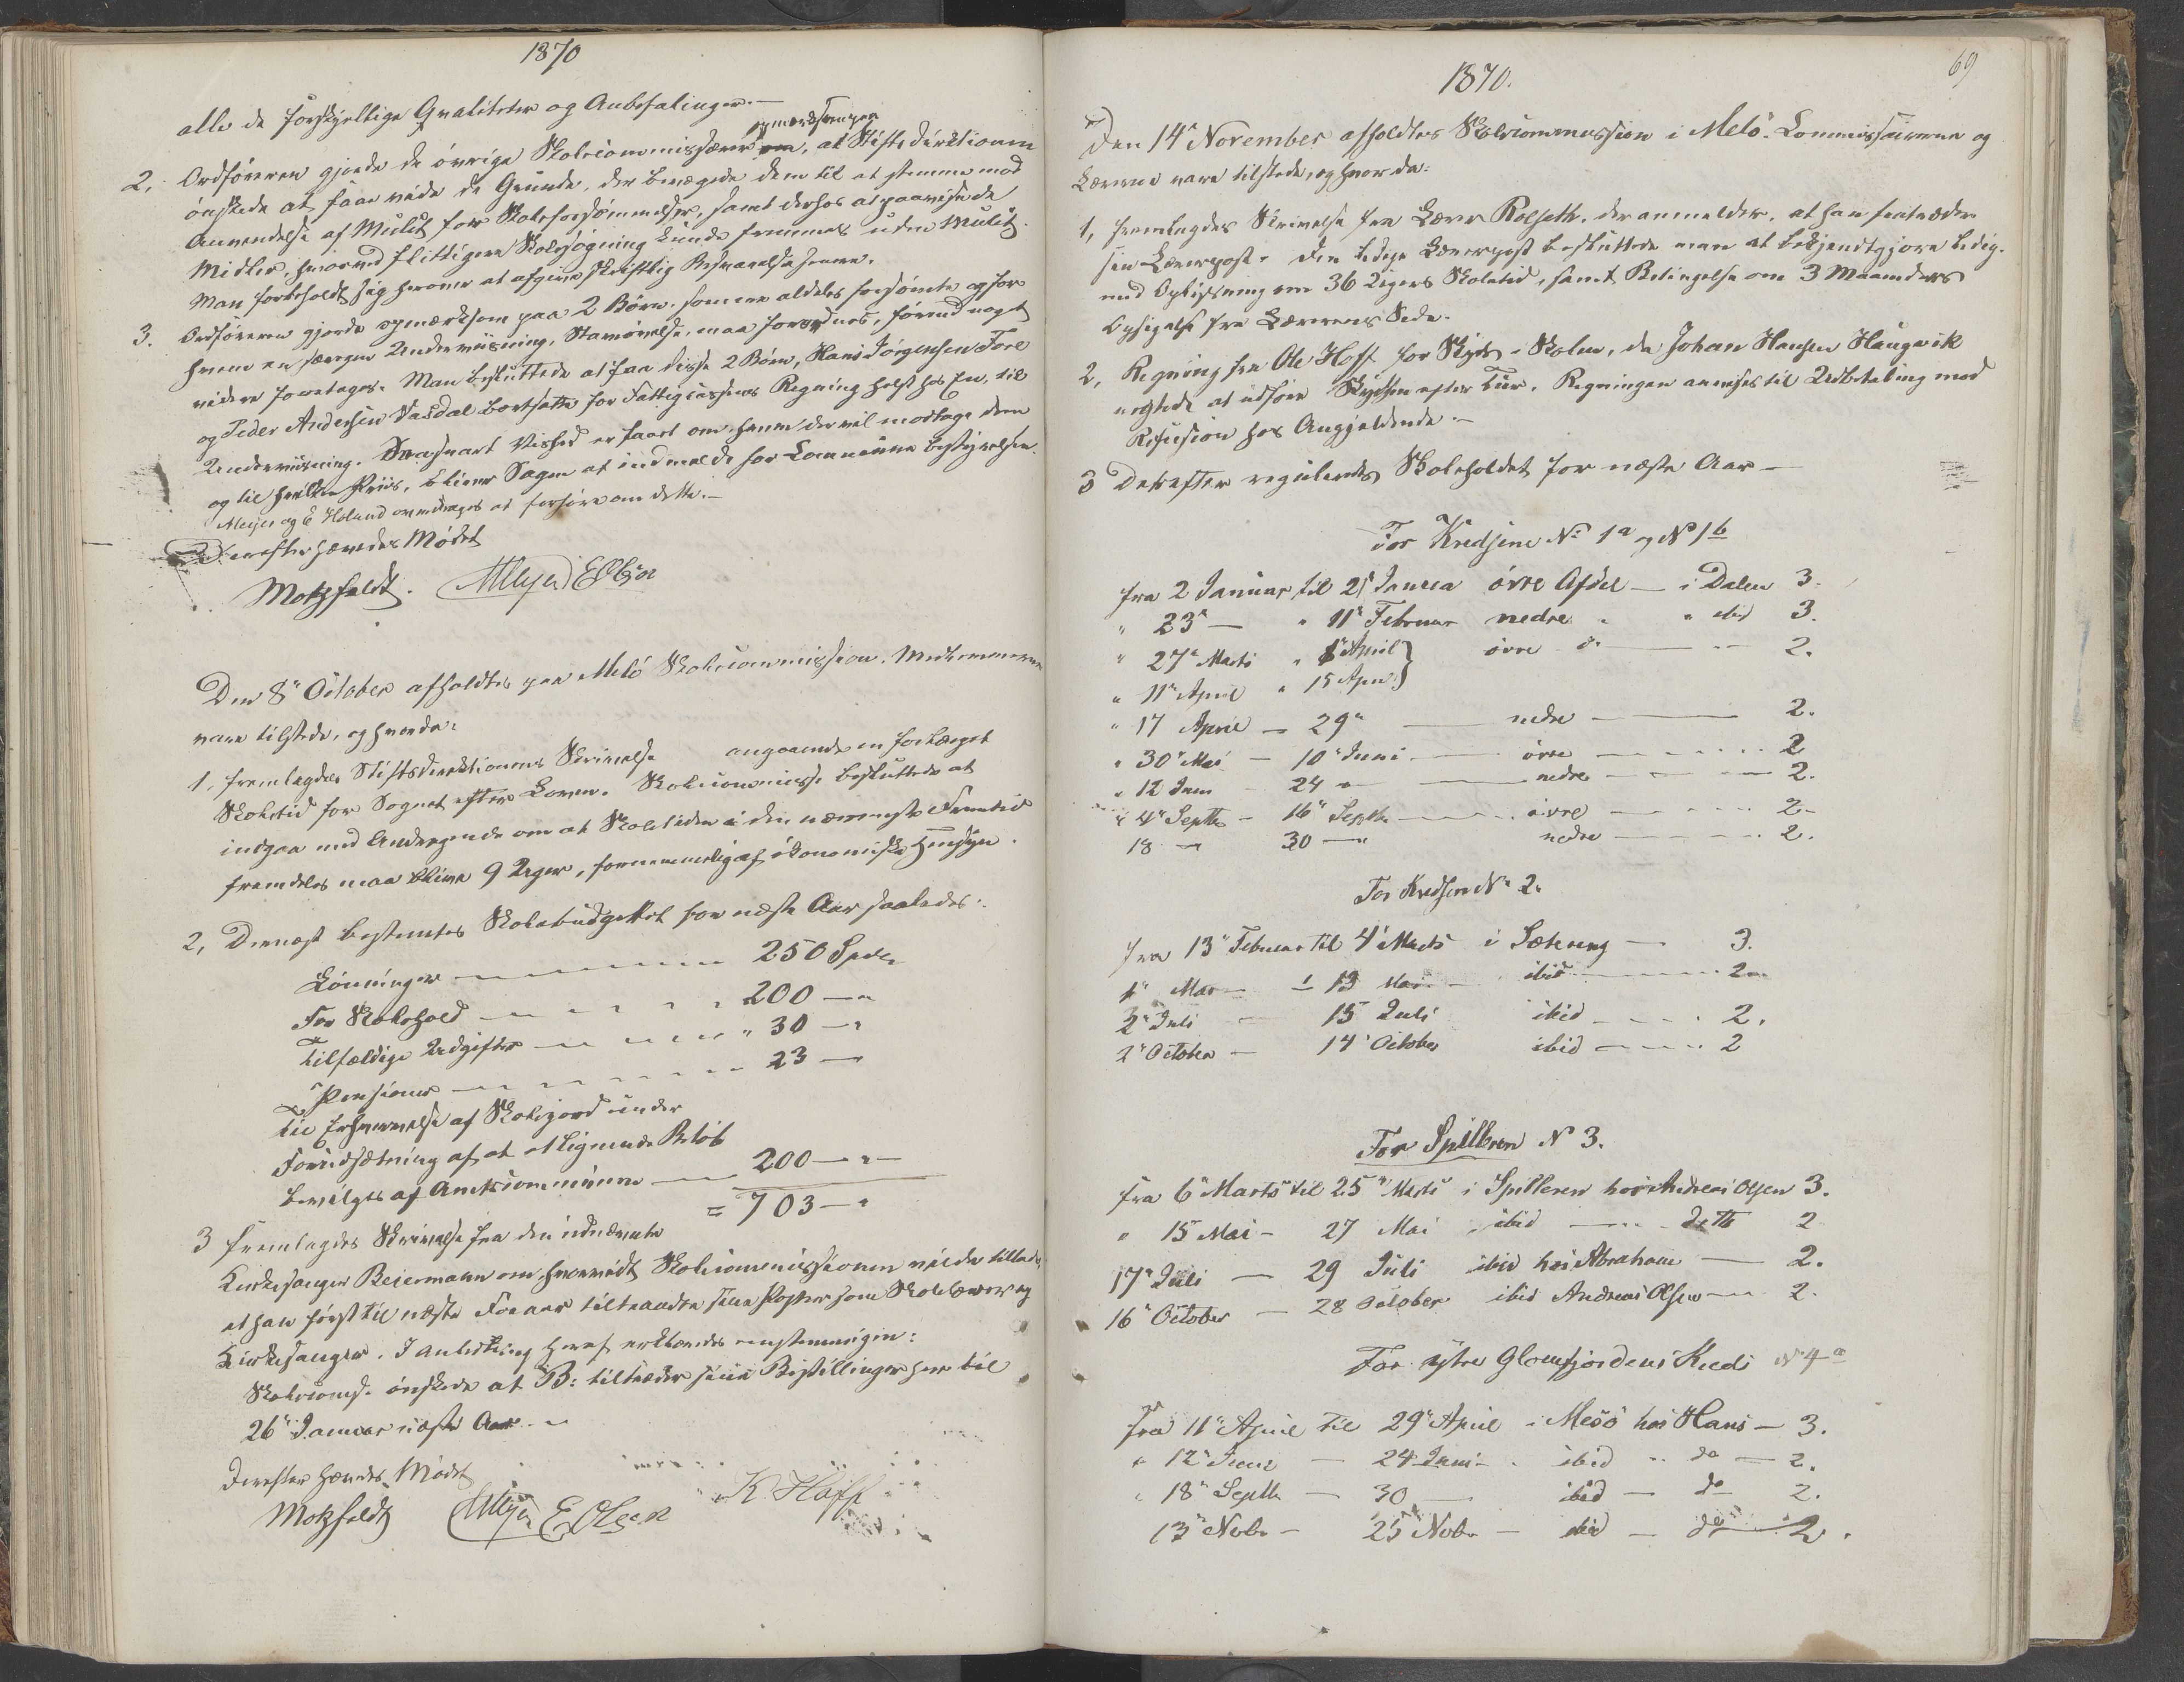 1870
alle de forskjellige Qvaliteter og Anbefalinger.—
2, Ordføreren gjorde de øvrige Skolecommissærer opmærksomme paa, at Stiftsdirektionen
ønskede at faae vide de Grunde, der bevægede dem til at stemme mod
Anvendelse af Mulct for Skoleforsømmelser, samt derhos at paavise de
Midler, hvorved flittigere Skolesøgning kunde fremmes uden Mulct.
Man forbeholdt sig herom at afgive skriftlig Besvarelse senere.
3. Ordføreren gjorde opmærksom paa 2 Børn, som ere aldeles forsømte og for
hvem en særegen Underviisning, Statsmøvelse, maa forordnes, førend noget
videre foretages. Man besluttede at faa disse 2 Børn, Hans Jørgensen Fore
og Peder Andersen Vasdal bortsatte for Fattigcassens Regning helst hos En, til
Underviisning. Saasnart Vished er faaet om hvem der vil modtage dem
og til hvilken Priis, bliver Sagen at indmelde for Communebestyrelsen.
Meyer og E Holand overdrages at forhøre om dette.—
Derefter hævedes Mødet
Motzfeldt. AMeyer EOlsen
Den 8de October afholdtes paa Melø Skolecommission. Medlemmerne
vare tilstede, og hvorda:
1. fremlagdes Stiftsdirektionens Skrivelse angaaende en forlænget
Skoletid for Sognet efter Loven. Skolecommiss. besluttede at
indgaa med Andragende om at Skoletiden i den nærmeste Fremtid
fremdeles maa blive 9 Uger, fornemmelig af økonomiske Hensyn.
2, Dernæst bestemtes Skolebudgettet for næste Aar saaledes:
Lønninger — 250 Spdr
For Skolehold — 200 — "
tilfældige Udgifter — " 30 — "
Pensioner — 23 —
til Erhvervelse af Skolejord under
Forudsætning af at et lignende Beløb
bevilges af Amtscommunen — 200 — " —
= 703 — "
3 fremlagdes Skrivelse fra den udnævnte
Kirkesanger Beiermann om hvorvidt Skolecommissionen vilde tillade,
at han først til næste Foraar tiltraadte sine Poster som Skolelærer og
Kirkesanger. I Anledning heraf erklærede enstemmigen:
Skolecoms. ønskede at B: tiltræder sine Bestillinger her til
26de Januar næste Aar. —
Derefter hævedes Mødet
Motzfeldt AMeyer EOlsen K. Hoff
69
1870.
Den 14de November afholdtes Skolecommission i Melø. Commissairerne og
Lærerne vare tilstede, og hvorda:
1, fremlagdes Skrivelse fra Lærer Rolseth, der anmelder, at han fratræder
sin Lærerpost. Den ledige Lærerpost besluttede man at bekjendtgjøre ledig.
med Oplysning om 36 Ugers Skoletid, samt Betingelse om 3 Maaneders
Opsigelse fra Lærerens Side.
2, Regning fra Ole Hoff for Skyds i Skolen, da Johan Hansen Haugvik
negtede at udføre Skydsen efter Tur. Regningen anvises til Udbetaling mod
Refusion hos Angjældende.—
3 Derefter reguleredes Skoleholdet for næste Aar —
For Kredsene No 1a og No 1b
fra 2 Januar til 21 Janua øvre Afdel — i Dalen 3.
" 23de — " 11te Februar nedre " " ibid 3.
" 27de Marts " 1ste April } øvre do — 2.
" 11te April " 15 Apr }
" 17 April — 29de — nedre — 2.
" 30te Mai — 10de Juni — øvre — 2
" 12 Juni 24 " — nedre — 2.
" 4de Septb — 16de Septbr — øvre — 2.
18 — 30 — " nedre — 2.
For Kredsen No 2.
fra 13de Februar til 4de Marts i Sætvang — 3.
1ste Mai — 13 Mai — ibid — 2
3de Juli — 15 Juli ibid — 2.
2de October — 14de October ibid — 2
For Spilderen N 3.
fra 6te Marts til 25de Marts i Spilderen hos Andreas Olsen 3.
" 15 Mai — 27 Mai ibid — dette 2
17de Juli — 29 Juli ibid hos Abraham — 2.
16de October — 28 October ibid Andreas Olsen — 2.
For ytre Glomfjordens Kreds No 4a
fra 11te April til 29de April i Mesø hos Hans — 3.
" 12te Juni — 24 Juni — ibid " do — 2.
" 18de Septbr — 30 — ibid — do 2.
13de Nobr — 25 Nobr — ibid — do — 2.